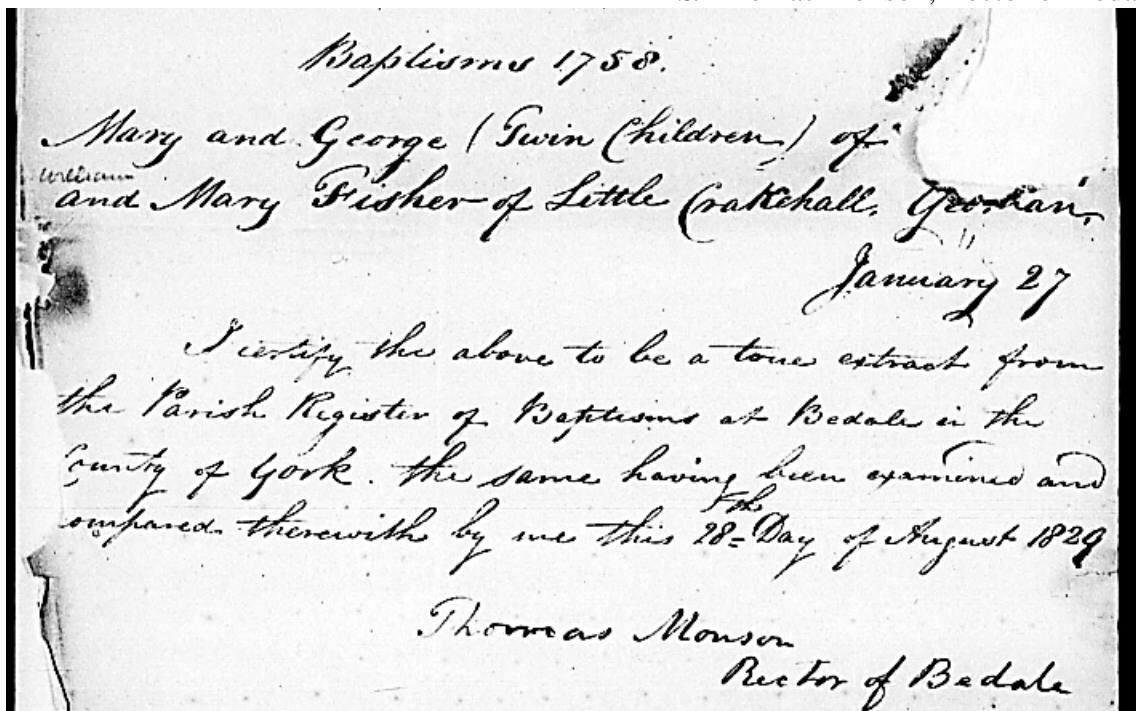 Baptisms 1758.
Mary and George (Twin Children) of
William
and Mary Fisher of Little Crakehall. Yeoman.
January 27
I certify the above to be a true extract from
the Parish Register of Baptisms at Bedale in the
County of York. the same having been examined and
compared therewith by me this 28th Day of August 1829
Thomas Monson
Rector of Bedale